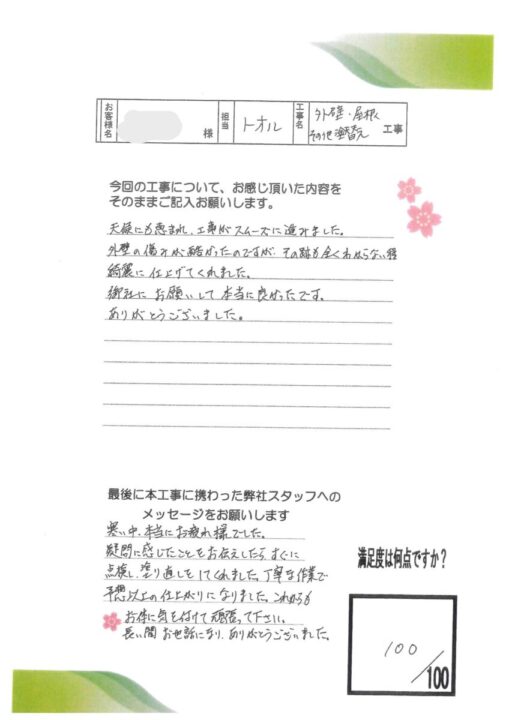 お客様名 様 担当 トオル 工事名 外壁・屋根 その他塗替え 工事
今回の工事について、お感じ頂いた内容を
そのままご記入お願いします。
天候にも恵まれ、工事がスムーズに進みました。
外壁の傷みが酷かったのですが、その跡も全くわからない程
綺麗に仕上げてくれました。
御社にお願いして本当に良かったです。
ありがとうございました。
最後に本工事に携わった弊社スタッフへの
メッセージをお願いします
寒い中、本当にお疲れ様でした。
疑問に感じたことをお伝えしたらすぐに
点検し、塗り直しをしてくれました。丁寧な作業で
予想以上の仕上がりになりました。これからも
お体に気を付けて頑張って下さい。
長い間お世話になり、ありがとうございました。
満足度は何点ですか？
100/100